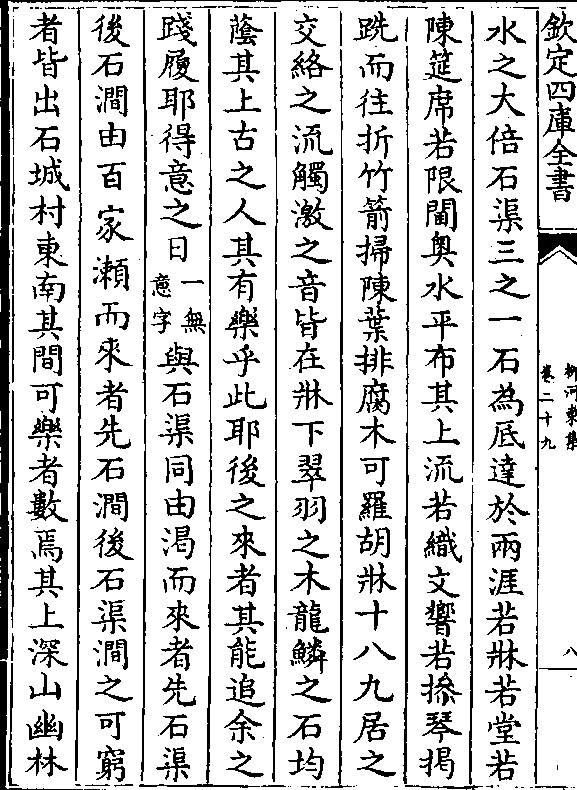 欽定四庫全書
柳河東集
卷二十九
八
水之大倍石渠三之一石為底達於兩涯若牀若堂若
陳筵席若限閫奧水平布其上流若織文響若操琴揭
跣而往折竹箭掃陳葉排腐木可羅胡牀十八九居之
交絡之流觸激之音皆在牀下翠羽之木龍鱗之石均
蔭其上古之人其有樂乎此耶後之來者其能追余之
踐履耶得意之日一無意字與石渠同由渴而來者先石渠
後石澗由百家瀨而來者先石澗後石渠澗之可窮
者皆出石城村東南其間可樂者數焉其上深山幽林